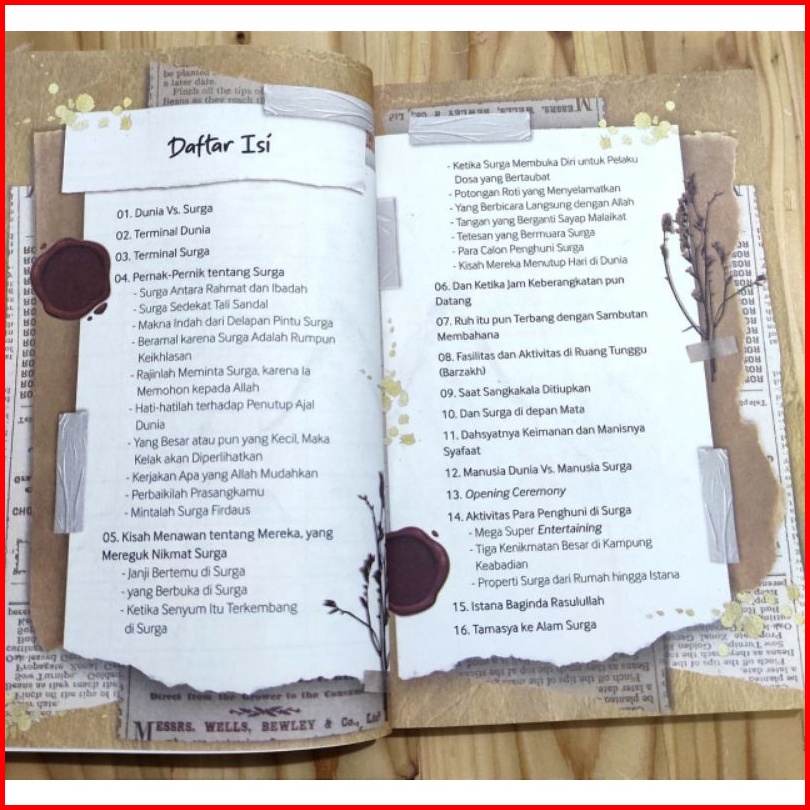 be planted
a later date.
Pinch off the tips of
Beans as they reach th
Daftar Isi
01. Dunia Vs. Surga
02. Terminal Dunia
03. Terminal Surga
04. Pernak-Pernik tentang Surga
- Surga Antara Rahmat dan Ibadah
- Surga Sedekat Tali Sandal
- Makna Indah dari Delapan Pintu Surga
- Beramal karena Surga Adalah Rumpun
Keikhlasan
- Rajinlah Meminta Surga, karena Ia
Memohon kepada Allah
- Hati-hatilah terhadap Penutup Ajal
Dunia
- Yang Besar atau pun yang Kecil, Maka
Kelak akan Diperlihatkan
- Kerjakan Apa yang Allah Mudahkan
- Perbaikilah Prasangkamu
- Mintalah Surga Firdaus
05. Kisah Menawan tentang Mereka, yang
Mereguk Nikmat Surga
- Janji Bertemu di Surga
- yang Berbuka di Surga
- Ketika Senyum Itu Terkembang
di Surga
Direct from the Grower to the
MESSRS. WELLS, BEWLEY & Co., Ltd
- Ketika Surga Membuka Diri untuk Pelaku
Dosa yang Bertaubat
- Potongan Roti yang Menyelamatkan
- Yang Berbicara Langsung dengan Allah
- Tangan yang Berganti Sayap Malaikat
- Tetesan yang Bermuara Surga
- Para Calon Penghuni Surga
- Kisah Mereka Menutup Hari di Dunia
06. Dan Ketika Jam Keberangkatan pun
Datang
07. Ruh itu pun Terbang dengan Sambutan
Membahana
08. Fasilitas dan Aktivitas di Ruang Tunggu
(Barzakh)
09. Saat Sangkakala Ditiupkan
10. Dan Surga di depan Mata
11. Dahsyatnya Keimanan dan Manisnya
Syafaat
12. Manusia Dunia Vs. Manusia Surga
13. Opening Ceremony
14. Aktivitas Para Penghuni di Surga
- Mega Super Entertaining
- Tiga Kenikmatan Besar di Kampung
Keabadian
- Properti Surga dari Rumah hingga Istana
15. Istana Baginda Rasulullah
16. Tamasya ke Alam Surga